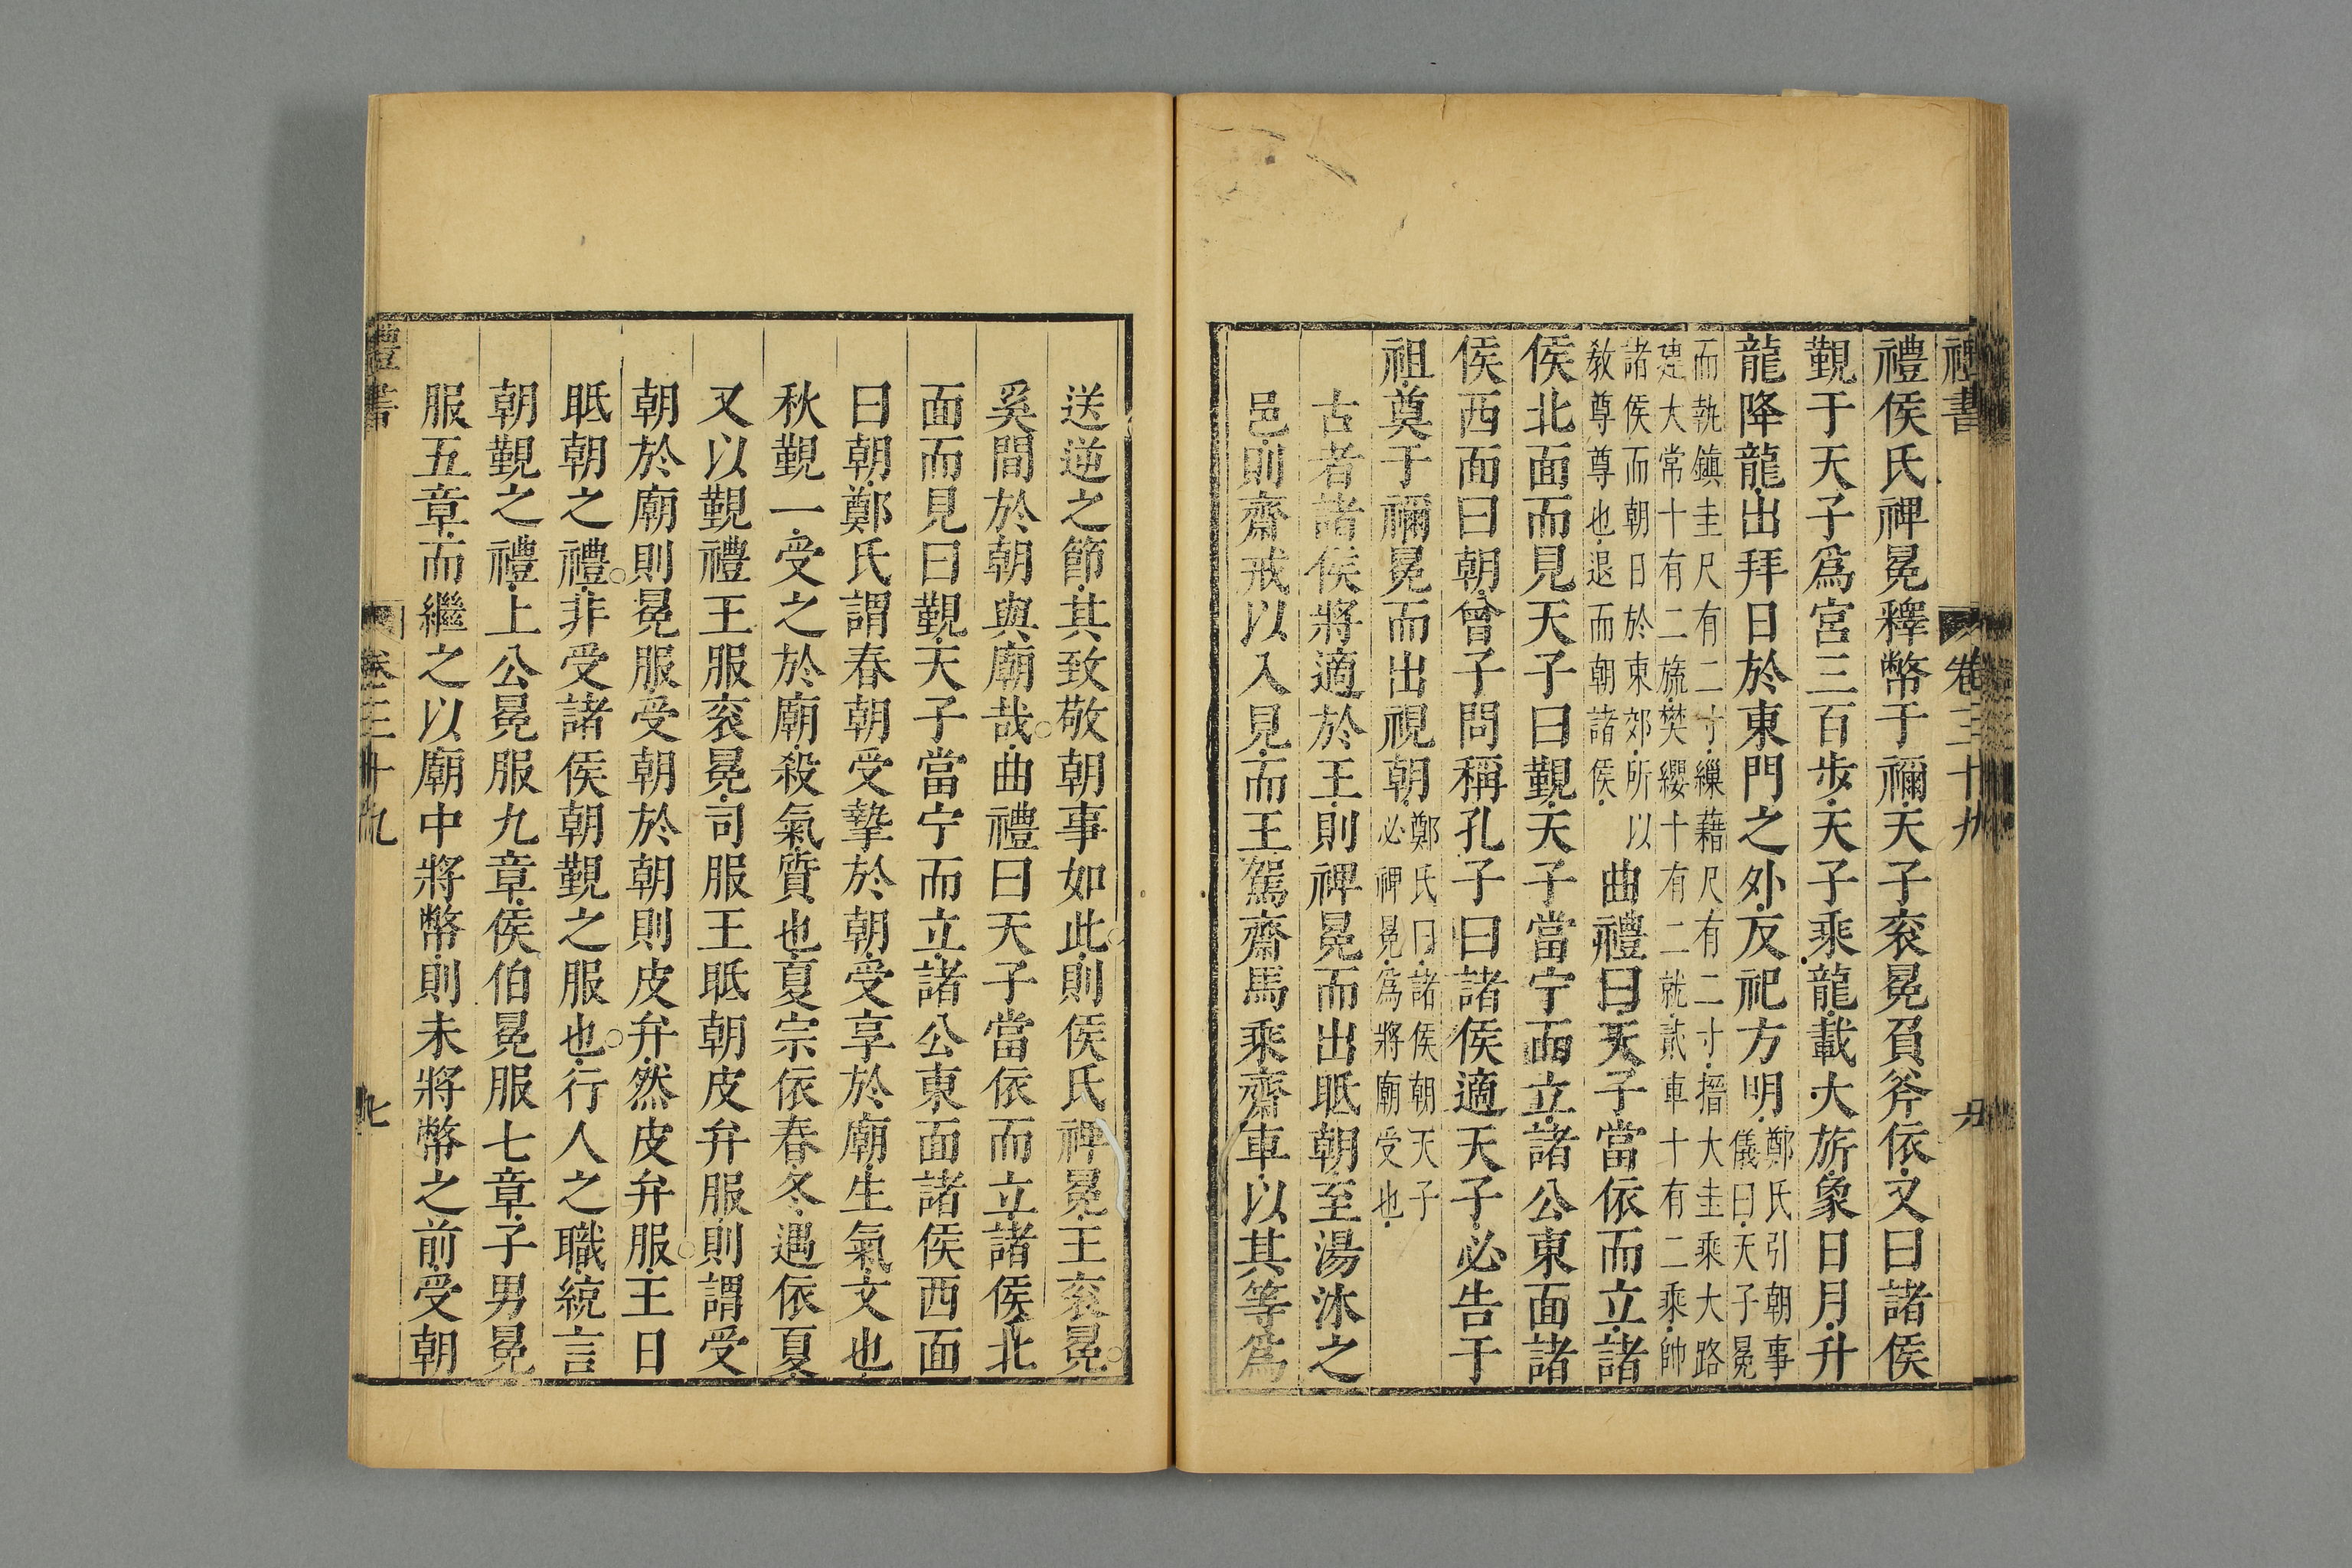 禮書 卷三十九
禮侯氏裨冕釋幣于禰天子衮冕負斧依又曰諸侯
覲于天子爲宮三百步天子乘龍載大旂象日月升
龍降龍出拜日於東門之外反祀方明鄭氏引朝事儀曰天子冕
而執鎮圭尺有二寸繅藉尺有二寸搢大圭乘大路
建大常十有二旒樊纓十有二就貳車十有二乘帥
諸侯而朝日於東郊所以
教尊尊也退而朝諸侯曲禮曰天子當依而立諸
侯北面而見天子曰覲天子當宁而立諸公東面諸
侯西面曰朝曾子問稱孔子曰諸侯適天子必告于
祖奠于禰冕而出視朝鄭氏曰諸侯朝天子必裨冕爲將廟受也
古者諸侯將適於王則裨冕而出眡朝至湯沐之
邑則齋戒以入見而王駕齋馬乘齋車以其等爲
送逆之節其致敬朝事如此則侯氏裨冕王衮冕
奚間於朝與廟哉曲禮曰天子當依而立諸侯北
面而見曰覲天子當宁而立諸公東面諸侯西面
曰朝鄭氏謂春朝受摯於朝受享於廟生氣文也
秋覲一受之於廟殺氣質也夏宗依春冬遇依夏
又以覲禮王服衮冕司服王眡朝皮弁服則謂受
朝於廟則冕服受朝於朝則皮弁然皮弁服王日
眡朝之禮非受諸侯朝覲之服也行人之職統言
朝覲之禮上公冕服九章侯伯冕服七章子男冕
服五章而繼之以廟中將幣則未將幣之前受朝
禮書 卷三十九 七